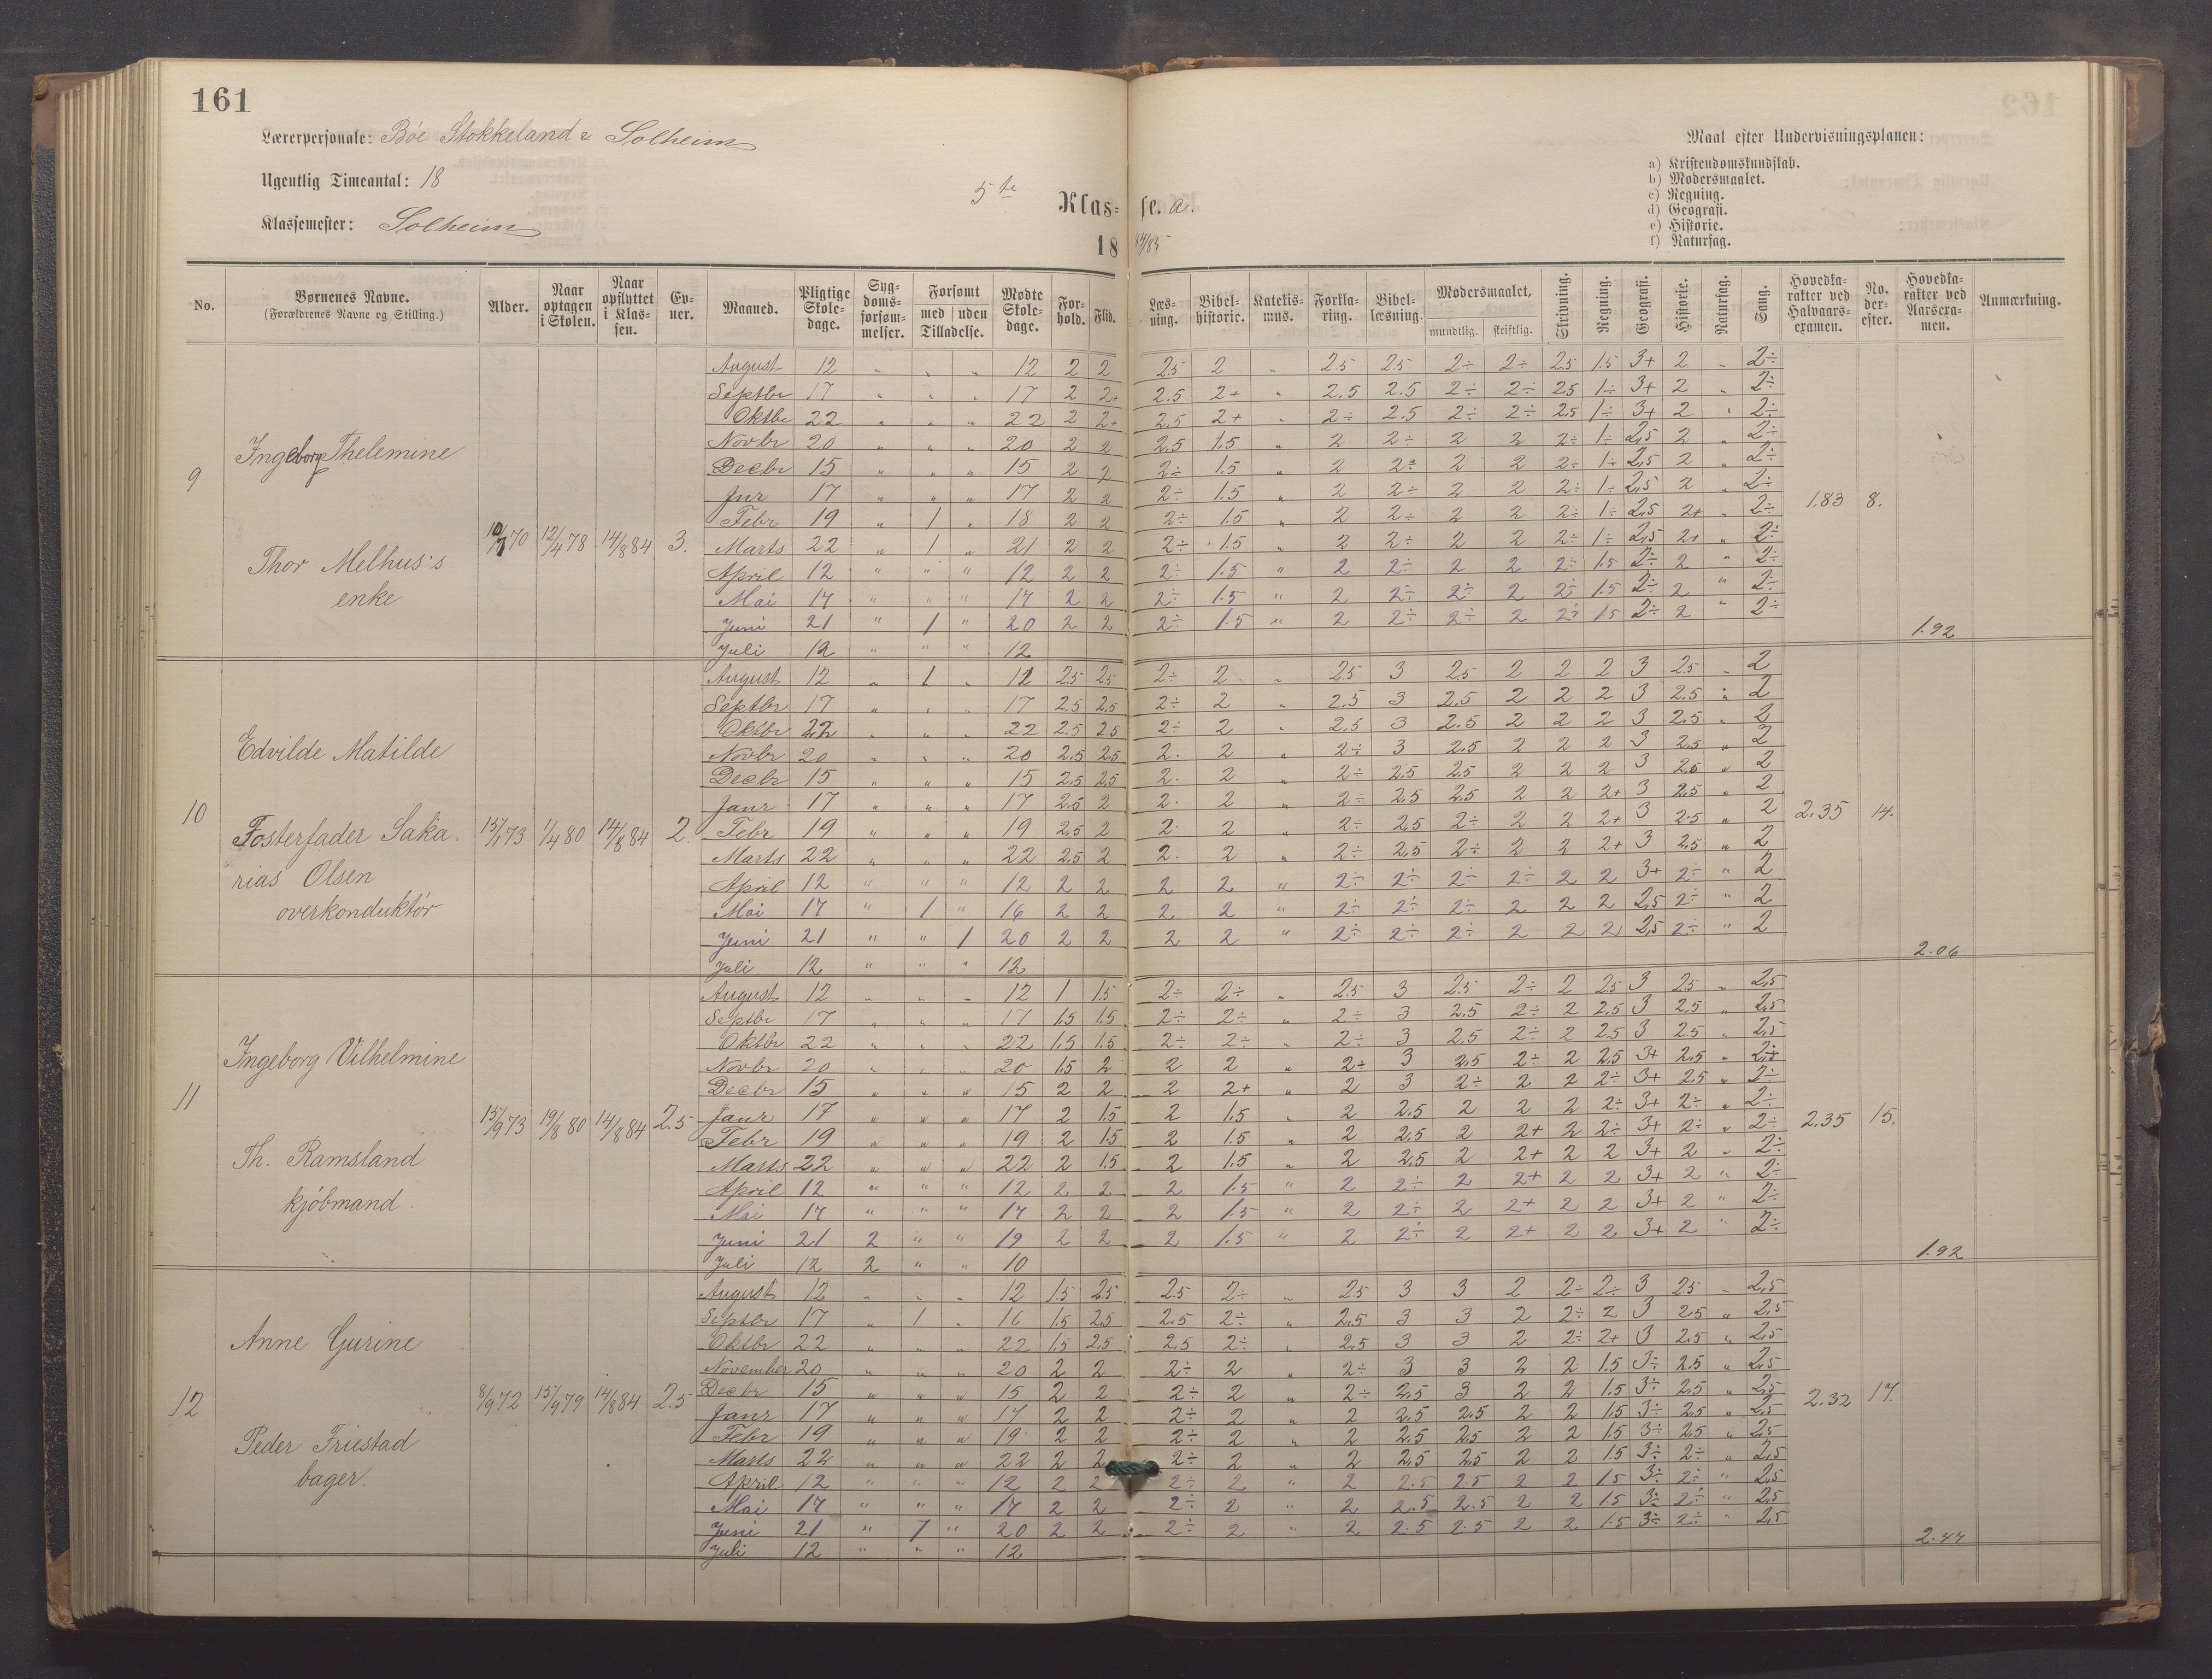 161
Lærerpersonale: Bóe Stokkeland & Solheim
Ugentlig Timeantal: 18
Klassemester: Solheim
5te Klasse. a.
18 84/85
Maal efter Undervisningsplanen:
a) Kristendomskundskab.
b) Modersmaalet.
c) Regning.
d) Geografi.
e) Historie.
f) Naturfag.
No. Børnenes Navne. (Forældrenes Navne og Stilling.) Alder. Naar optagen i Skolen. Naar opflyttet i Klassen. Evner. Maaned. Pligtige Skoledage. Sygdomsforsømmelser. Forsømt med uden Tilladelse. Mødte Skoledage. Forhold. Flid. Læsning. Bibelhistorie. Katekismus. Forklaring. Bibellæsning. Modersmaalet, mundtlig. skriftlig. Skrivning. Regning. Geografi. Historie. Naturfag. Sang. Hovedkarakter ved Halvaarsexamen. No. derefter. Hovedkarakter ved Aarsexamen. Anmærkning.
9 Ingeborg Thelemine
Thor Melhus's
enke
10/7 70 12/4 78 14/8 84 3. 1.83 8. 1.92
August 12 " " " 12 2 2 2.5 2 " 2.5 2.5 2÷ 2÷ 2.5 1.5 3+ 2 " 2÷
Septbr 17 " " " 17 2 2+ 2.5 2+ " 2.5 2.5 2÷ 2÷ 2.5 1÷ 3+ 2 " 2÷
Oktbr 22 " " " 22 2 2+ 2.5 2+ " 2÷ 2.5 2÷ 2÷ 2.5 1÷ 3+ 2 " 2÷
Novbr 20 " " " 20 2 2 2.5 1.5 " 2 2÷ 2 2 2÷ 1÷ 2.5 2 " 2÷
Decbr 15 " " " 15 2 2 2÷ 1.5 " 2 2÷ 2 2 2÷ 1÷ 2.5 2 " 2÷
Jnr 17 " " " 17 2 2 2÷ 1.5 " 2 2÷ 2 2 2÷ 1÷ 2.5 2 " 2÷
Febr 19 " 1 " 18 2 2 2÷ 1.5 " 2 2÷ 2 2 2÷ 1÷ 2.5 2+ " 2÷
Marts 22 " 1 " 21 2 2 2÷ 1.5 " 2 2÷ 2 2 2÷ 1÷ 2.5 2+ " 2÷
April 12 " " " 12 2 2 2÷ 1.5 " 2 2÷ 2 2 2÷ 1.5 2÷ 2 " 2÷
Mai 17 " " " 17 2 2 2÷ 1.5 " 2 2÷ 2÷ 2 2÷ 1.5 2÷ 2 " 2÷
Juni 21 " 1 " 20 2 2 2÷ 1.5 " 2 2÷ 2÷ 2 2÷ 1.5 2÷ 2 " 2÷
Juli 12 " " " 12
10 Edvilde Matilde
Fosterfader Saka.
rias Olsen
overkonduktör
15/1 73 1/4 80 14/8 84 2. 2.35 14. 2.06
August 12 " 1 " 12 2.5 2.5 2÷ 2 " 2.5 3 2.5 2 2 2 3 2.5 " 2
Septbr 17 " " " 17 2.5 2.5 2÷ 2 " 2.5 3 2.5 2 2 2 3 2.5 " 2
Oktbr 22 " " " 22 2.5 2.5 2÷ 2 " 2.5 3 2.5 2 2 2 3 2.5 " 2
Novbr 20 " " " 20 2.5 2.5 2. 2 " 2÷ 3 2.5 2 2 2 3 2.5 " 2
Decbr 15 " " " 15 2.5 2.5 2. 2 " 2÷ 2.5 2.5 2 2 2 3 2.5 " 2
Janr 17 " " " 17 2.5 2 2. 2 " 2÷ 2.5 2.5 2 2 2+ 3 2.5 " 2
Febr 19 " " " 19 2.5 2 2. 2 " 2÷ 2.5 2÷ 2 2 2+ 3 2.5 " 2
Marts 22 " " " 22 2.5 2 2. 2 " 2÷ 2.5 2÷ 2 2 2+ 3 2.5 " 2
April 12 " " " 12 2 2 2 2 " 2÷ 2÷ 2÷ 2÷ 2 2 3+ 2÷ " 2
Mai 17 " 1 " 16 2 2 2 2 " 2÷ 2÷ 2÷ 2 2 2 2.5 2÷ " 2
Juni 21 " " 1 20 2 2 2 2 " 2÷ 2÷ 2÷ 2 2 2 2.5 2÷ " 2
Juli 12 " " " 12
11 Ingeborg Vilhelmine
Th. Ramsland
kjöbmand.
15/9 73 19/8 80 14/8 84 2.5 2.35 15. 1.92
August 12 " " " 12 1 1.5 2÷ 2÷ " 2.5 3 2.5 2÷ 2 2.5 3 2.5 " 2.5
Septbr 17 " " " 17 1.5 1.5 2÷ 2÷ " 2÷ 3 2.5 2÷ 2 2.5 3 2.5 " 2.5
Oktbr 22 " " " 22 1.5 1.5 2÷ 2÷ " 2÷ 3 2.5 2÷ 2 2.5 3 2.5 " 2.5
Novbr 20 " " " 20 1.5 2 2 2 " 2÷ 3 2.5 2÷ 2 2.5 3+ 2.5 " 2÷
Decbr 15 " " " 15 2 2 2 2+ " 2 3 2÷ 2 2 2÷ 3+ 2.5 " 2÷
Janr 17 " " " 17 2 1.5 2 1.5 " 2 2.5 2 2 2 2÷ 3+ 2÷ " 2÷
Febr 19 " " " 19 2 1.5 2 1.5 " 2 2.5 2 2+ 2 2÷ 3+ 2÷ " 2÷
Marts 22 " " " 22 2 1.5 2 1.5 " 2 2.5 2 2+ 2 2 3+ 2 " 2÷
April 12 " " " 12 2 2 2 1.5 " 2 2÷ 2 2+ 2 2 3+ 2 " 2÷
Mai 17 " " " 17 2 2 2 1.5 " 2 2÷ 2 2+ 2 2 3+ 2 " 2÷
Juni 21 2 " " 19 2 2 2 1.5 " 2 2÷ 2 2+ 2 2 3+ 2 " 2÷
Juli 12 2 " " 10
12 Anne Gurine
Peder Friestad
bager.
8/9 72 15/9 79 14/8 84 2.5 2.32 17. 2.44
August 12 " " " 12 1.5 2.5 2.5 2÷ " 2.5 3 3 2 2÷ 2÷ 3 2.5 " 2.5
Septbr 17 " 1 " 16 1.5 2.5 2.5 2÷ " 2.5 3 3 2 2÷ 2 3 2.5 " 2.5
Oktbr 22 " " " 22 1.5 2.5 2.5 2÷ " 2.5 3 3 2 2÷ 2+ 3 2.5 " 2.5
November 20 " " " 20 2 2 2÷ 2 " 2÷ 3 3 2 2 1.5 3÷ 2.5 " 2.5
Decbr 15 " " " 15 2 2 2÷ 2 " 2÷ 2.5 3 2 2 1.5 3÷ 2.5 " 2.5
Janr 17 " " " 17 2 2 2÷ 2 " 2 2.5 2.5 2 2 1.5 3÷ 2.5 " 2.5
Febr 19 " " " 19 2 2 2÷ 2 " 2 2.5 2.5 2 2 1.5 3÷ 2.5 " 2.5
Marts 22 " " " 22 2 2 2÷ 2 " 2 2.5 2.5 2 2 1.5 3÷ 2÷ " 2.5
April 12 " " " 12 2 2 2÷ 2 " 2 2.5 2.5 2 2 1.5 3÷ 2÷ " 2.5
Mai 17 " " " 17 2 2 2÷ 2 " 2 2.5 2.5 2 2 1.5 3÷ 2÷ " 2.5
Juni 21 " 1 " 20 2 2 2÷ 2 " 2 2.5 2.5 2 2 1.5 3÷ 2÷ " 2.5
Juli 12 " " " 12